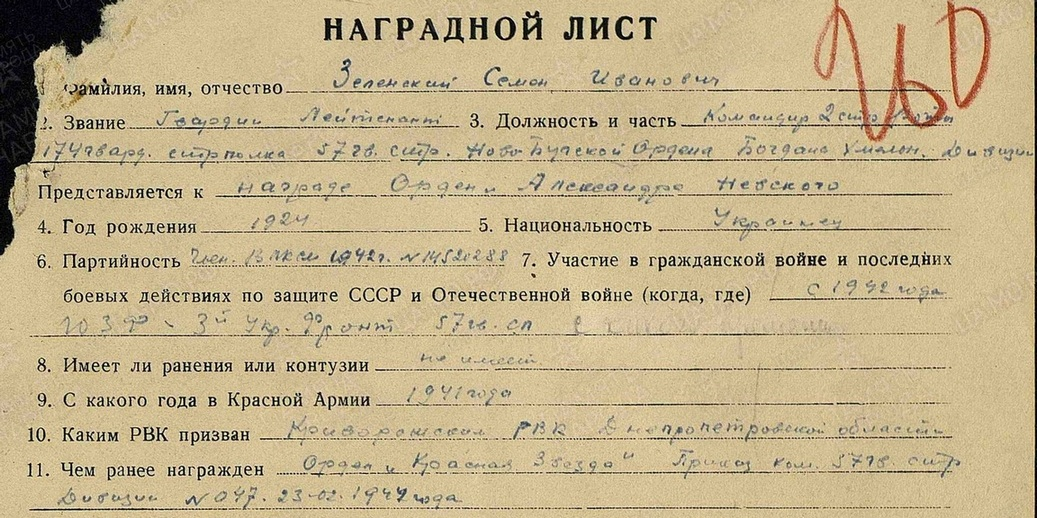 НАГРАДНОЙ ЛИСТ
260
Фамилия, имя, отчество Зеленский Семен Иванович
2. Звание Гвардии Лейтенант 3. Должность и часть Командир 2 стр Роты
174 гвард. стр полка 57 гв. стр. Ново-Бугской Ордена Богдана Хмельн. Дивизии
Представляется к награде Орден Александра Невского
4. Год рождения 1924 5. Национальность Украинец
6. Партийность Член ВЛКСМ 1942 г. 7. Участие в гражданской войне и последних
боевых действиях по защите СССР и Отечественной войне (когда, где) с 1942 года
ЮЗФ - 3й Укр. Фронт 57 гв. сп
8. Имеет ли ранения или контузии не имеет
9. С какого года в Красной Армии 1941 года
10. Каким РВК призван Криворожским РВК Днепропетровской области
11. Чем ранее награжден Орден „Красная Звезда" Приказ ком. 57 гв. стр
Дивизии N 047. 23-02-1944 года